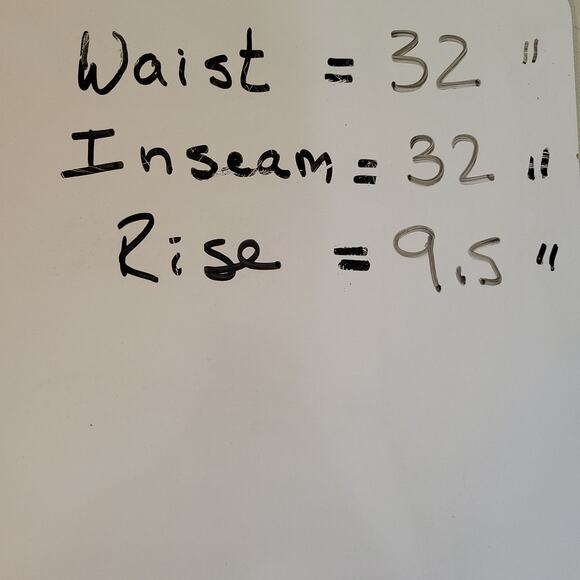 Waist = 32 "
Inseam = 32 "
Rise = 9.5 "